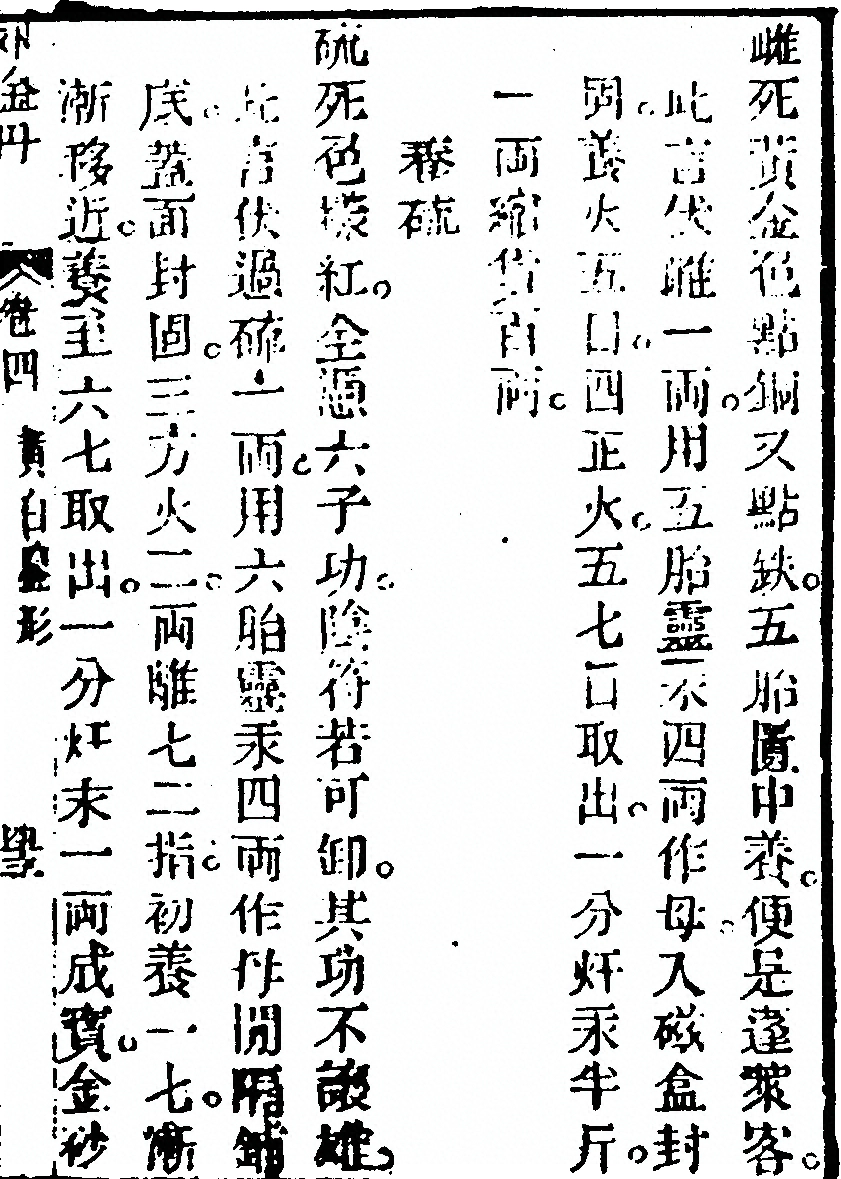 雌死黃金色點銅又點鉄。五胎匱中養。便是蓬萊客。
此言伏雌一兩。用五胎靈汞四兩作母。入磁盒封
固。養火五日。四正火。五七日取出。一分𤆬汞半斤。
一兩縮貨百兩。
養硫
硫死色樣紅。全憑六子功。陰符若可卸。其功不敢雄。
此言伏過硫一兩。用六胎靈汞四兩作母間隔鋪
底。蓋面封固。三方火二。兩離七二指。初養一七。漸
漸移近。養至六七取出。一分𤆬末一兩成寶。金砂
外金丹 卷四 黃白鉴形